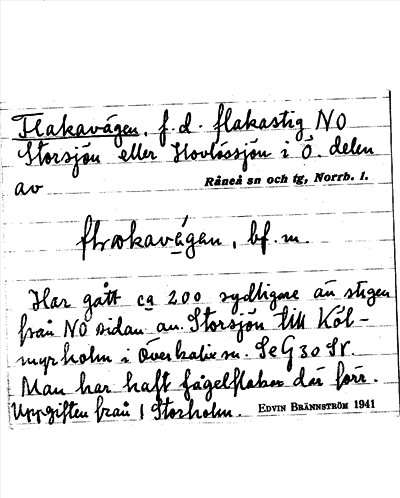 Flakavägen, f.d. flakastig NO
Storsjön eller Hovlössjön i Ö. delen
av Råneå sn och tg, Norrb. l.
flakavégan, bf. m.
Har gått ca 200 sydligare än stigen
från NO sidan av Storsjön till Köl-
myrholm i Överkalix sn. Se G 30 Sr.
Man har haft fågelflakar där förr.
Uppgiften från 1 Storholm. EDVIN BRÄNNSTRÖM 1941